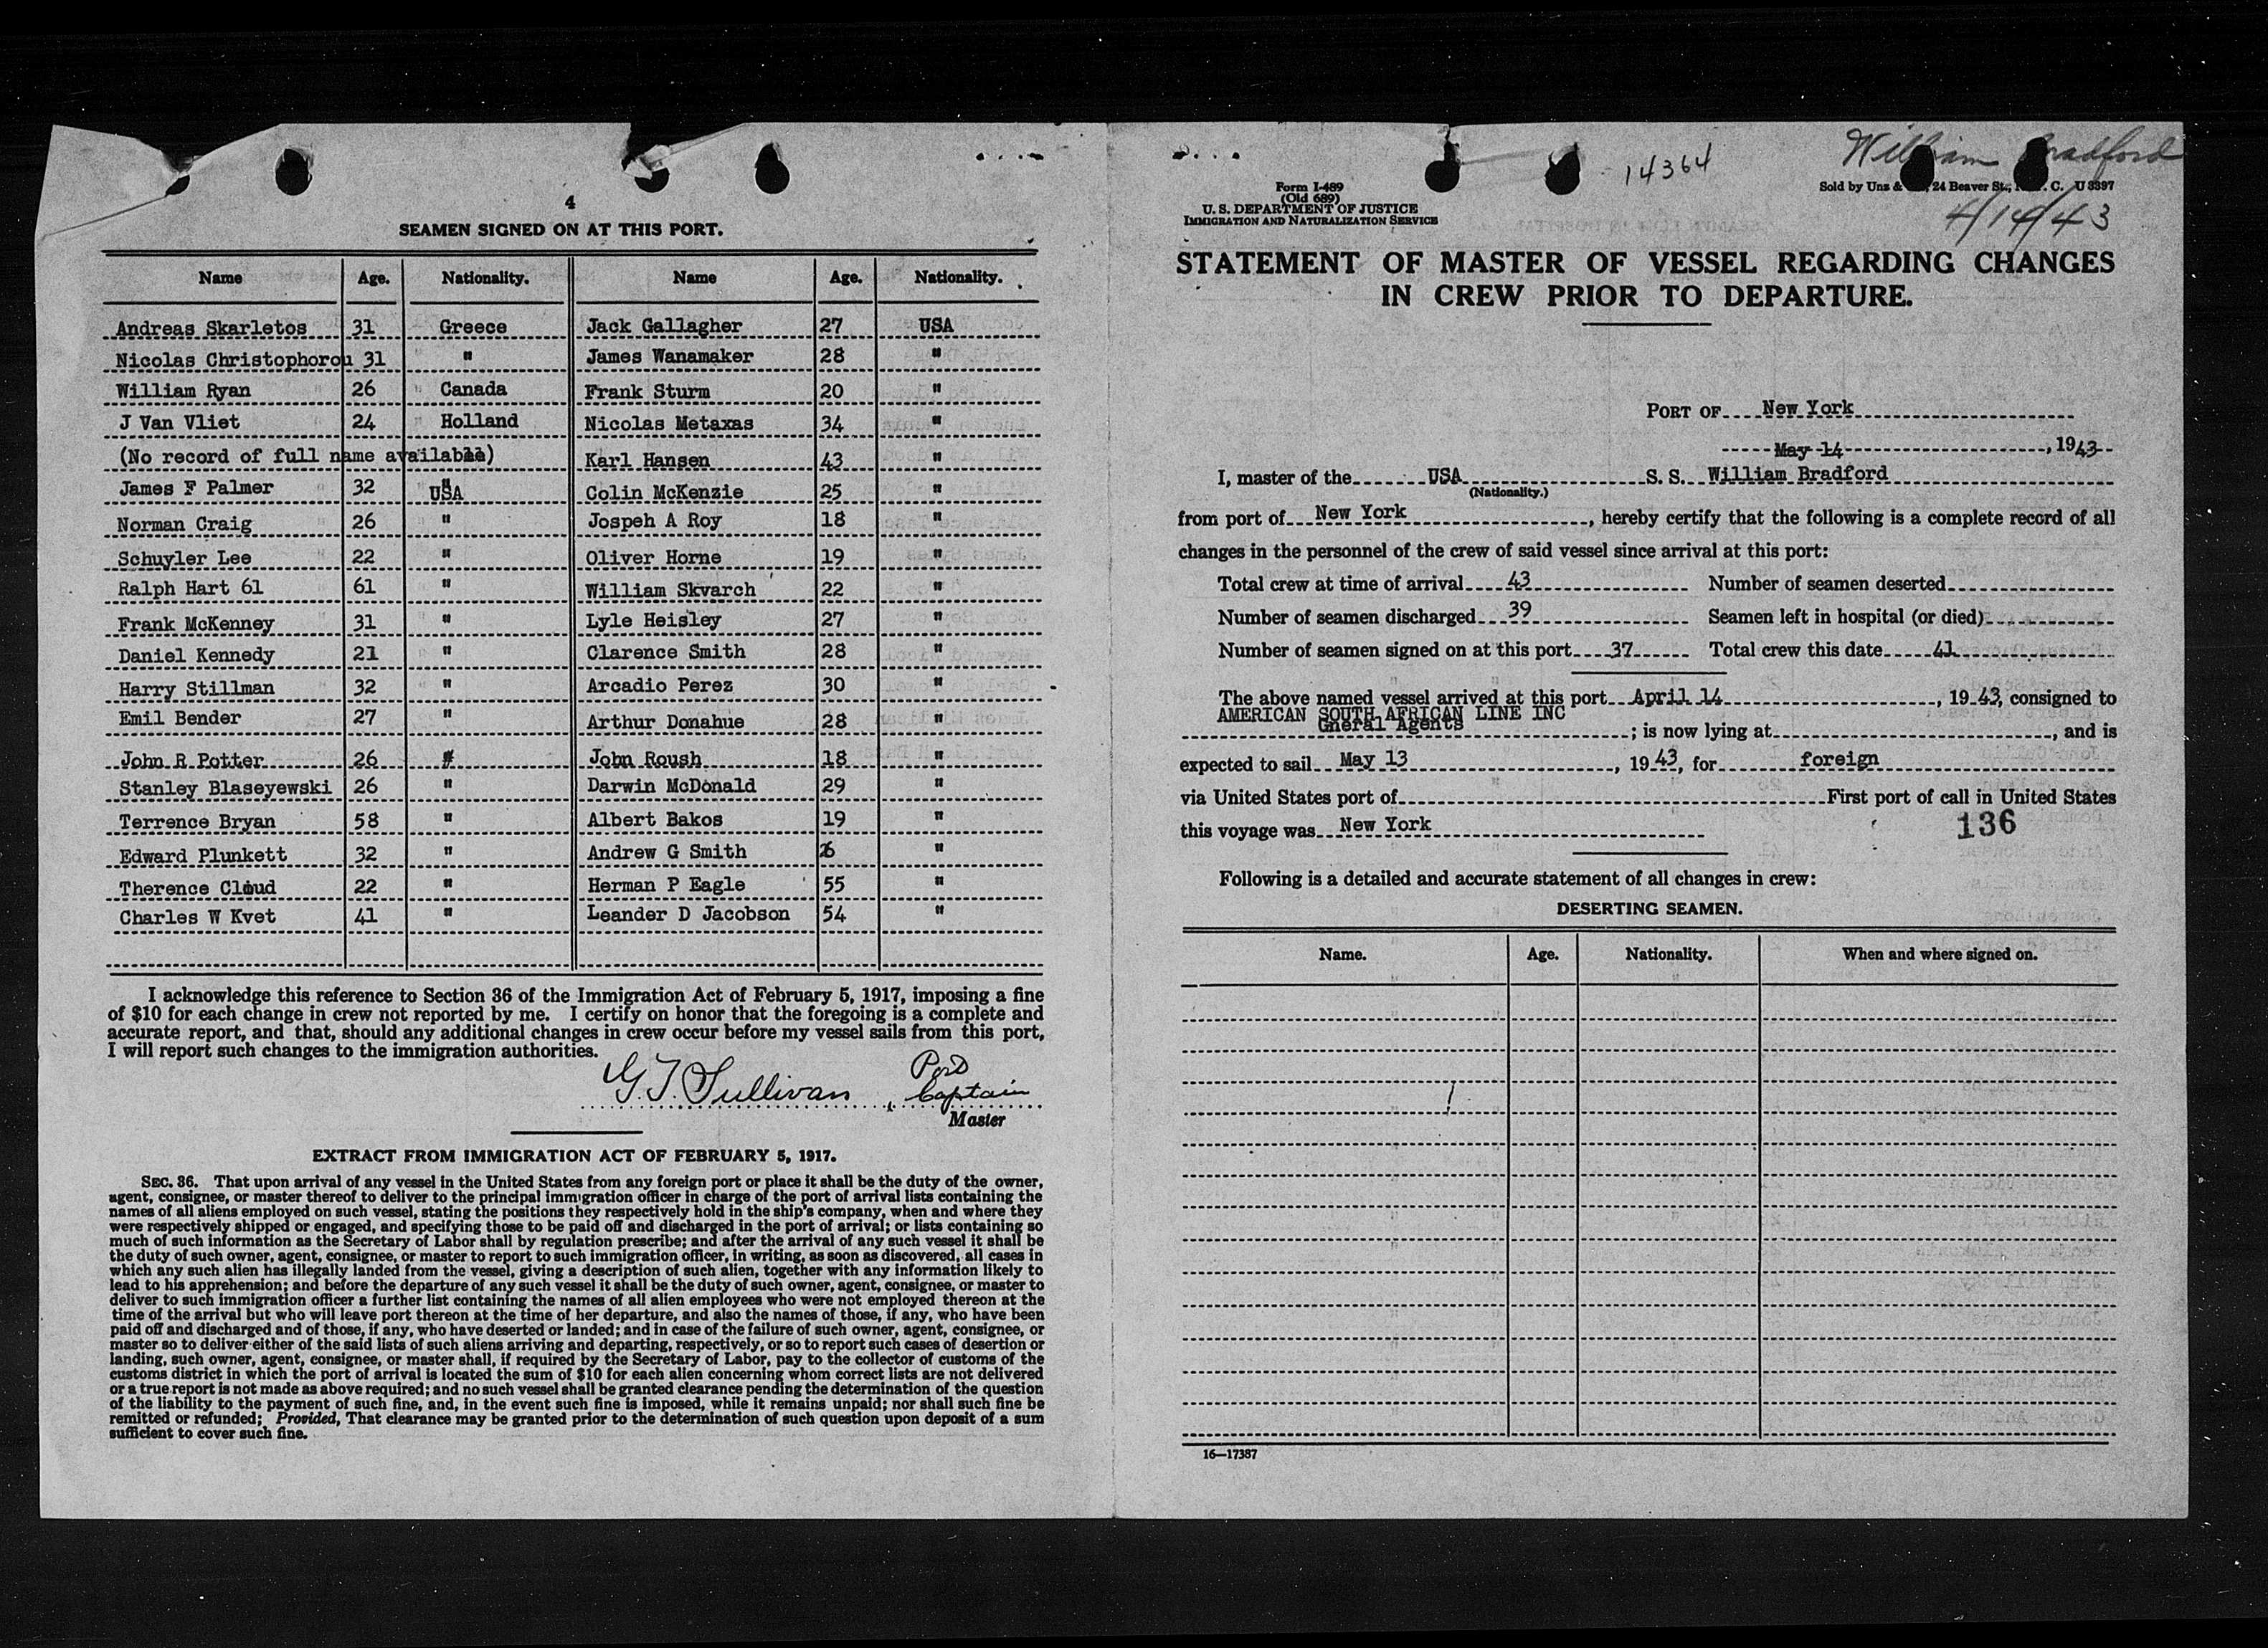 4
SEAMEN SIGNED ON AT THIS PORT.
Name Age. Nationality. Name Age. Nationality.
Andreas Skarletos 31 Greece Jack Gallagher 27 USA
Nicolas Christophorou 31 " James Wanamaker 28 "
William Ryan 26 Canada Frank Sturm 20 "
J Van Vliet 24 Holland Nicolas Metaxas 34 "
(No record of full name available) Karl Hansen 43 "
James F Palmer 32 USA Colin McKenzie 25 "
Norman Craig 26 " Jospeh A Roy 18 "
Schuyler Lee 22 " Oliver Horne 19 "
Ralph Hart 61 61 " William Skvarch 22 "
Frank McKenney 31 " Lyle Heisley 27 "
Daniel Kennedy 21 " Clarence Smith 28 "
Harry Stillman 32 " Arcadio Perez 30 "
Emil Bender 27 " Arthur Donahue 28 "
John R Potter 26 John Roush 18 "
Stanley Blaseyewski 26 " Darwin McDonald 29 "
Terrence Bryan 58 " Albert Bakos 19 "
Edward Plunkett 32 " Andrew G Smith "
Therence Cloud 22 " Herman P Eagle 55 "
Charles W Kvet 41 " Leander D Jacobson 54 "
I acknowledge this reference to Section 36 of the Immigration Act of February 5, 1917, imposing a fine
of $10 for each change in crew not reported by me. I certify on honor that the foregoing is a complete and
accurate report, and that, should any additional changes in crew occur before my vessel sails from this port,
I will report such changes to the immigration authorities.
G.T. Sullivan, Port Captain
Master
EXTRACT FROM IMMIGRATION ACT OF FEBRUARY 5, 1917.
SEC. 36. That upon arrival of any vessel in the United States from any foreign port or place it shall be the duty of the owner,
agent, consignee, or master thereof to deliver to the principal immigration officer in charge of the port of arrival lists containing the
names of all aliens employed on such vessel, stating the positions they respectively hold in the ship's company, when and where they
were respectively shipped or engaged, and specifying those to be paid off and discharged in the port of arrival; or lists containing so
much of such information as the Secretary of Labor shall by regulation prescribe; and after the arrival of any such vessel it shall be
the duty of such owner, agent, consignee, or master to report to such immigration officer, in writing, as soon as discovered, all cases in
which any such alien has illegally landed from the vessel, giving a description of such alien, together with any information likely to
lead to his apprehension; and before the departure of any such vessel it shall be the duty of such owner, agent, consignee, or master to
deliver to such immigration officer a further list containing the names of all alien employees who were not employed thereon at the
time of the arrival but who will leave port thereon at the time of her departure, and also the names of those, if any, who have been
paid off and discharged and of those, if any, who have deserted or landed; and in case of the failure of such owner, agent, consignee, or
master so to deliver either of the said lists of such aliens arriving and departing, respectively, or so to report such cases of desertion or
landing, such owner, agent, consignee, or master shall, if required by the Secretary of Labor, pay to the collector of customs of the
customs district in which the port of arrival is located the sum of $10 for each alien concerning whom correct lists are not delivered
or a true report is not made as above required; and no such vessel shall be granted clearance pending the determination of the question
of the liability to the payment of such fine, and, in the event such fine is imposed, while it remains unpaid; nor shall such fine be
remitted or refunded; Provided, That clearance may be granted prior to the determination of such question upon deposit of a sum
sufficient to cover such fine.
14364
William Bradford
Form I-489
(Old 689)
U. S. DEPARTMENT OF JUSTICE
IMMIGRATION AND NATURALIZATION SERVICE
Sold by Unz & 24 Beaver St., C. U 8397
4/14/43
STATEMENT OF MASTER OF VESSEL REGARDING CHANGES
IN CREW PRIOR TO DEPARTURE.
PORT OF New York
May 14, 1943
I, master of the USA S. S. William Bradford
(Nationality.)
from port of New York, hereby certify that the following is a complete record of all
changes in the personnel of the crew of said vessel since arrival at this port:
Total crew at time of arrival 43 Number of seamen deserted
Number of seamen discharged 39 Seamen left in hospital (or died)
Number of seamen signed on at this port 37 Total crew this date 41
The above named vessel arrived at this port April 14, 1943, consigned to
AMERICAN SOUTH AFRICAN LINE INC
Gneral Agents; is now lying at, and is
expected to sail May 13, 1943, for foreign
via United States port of First port of call in United States
this voyage was New York
136
Following is a detailed and accurate statement of all changes in crew:
DESERTING SEAMEN.
Name. Age. Nationality. When and where signed on.
16—17387